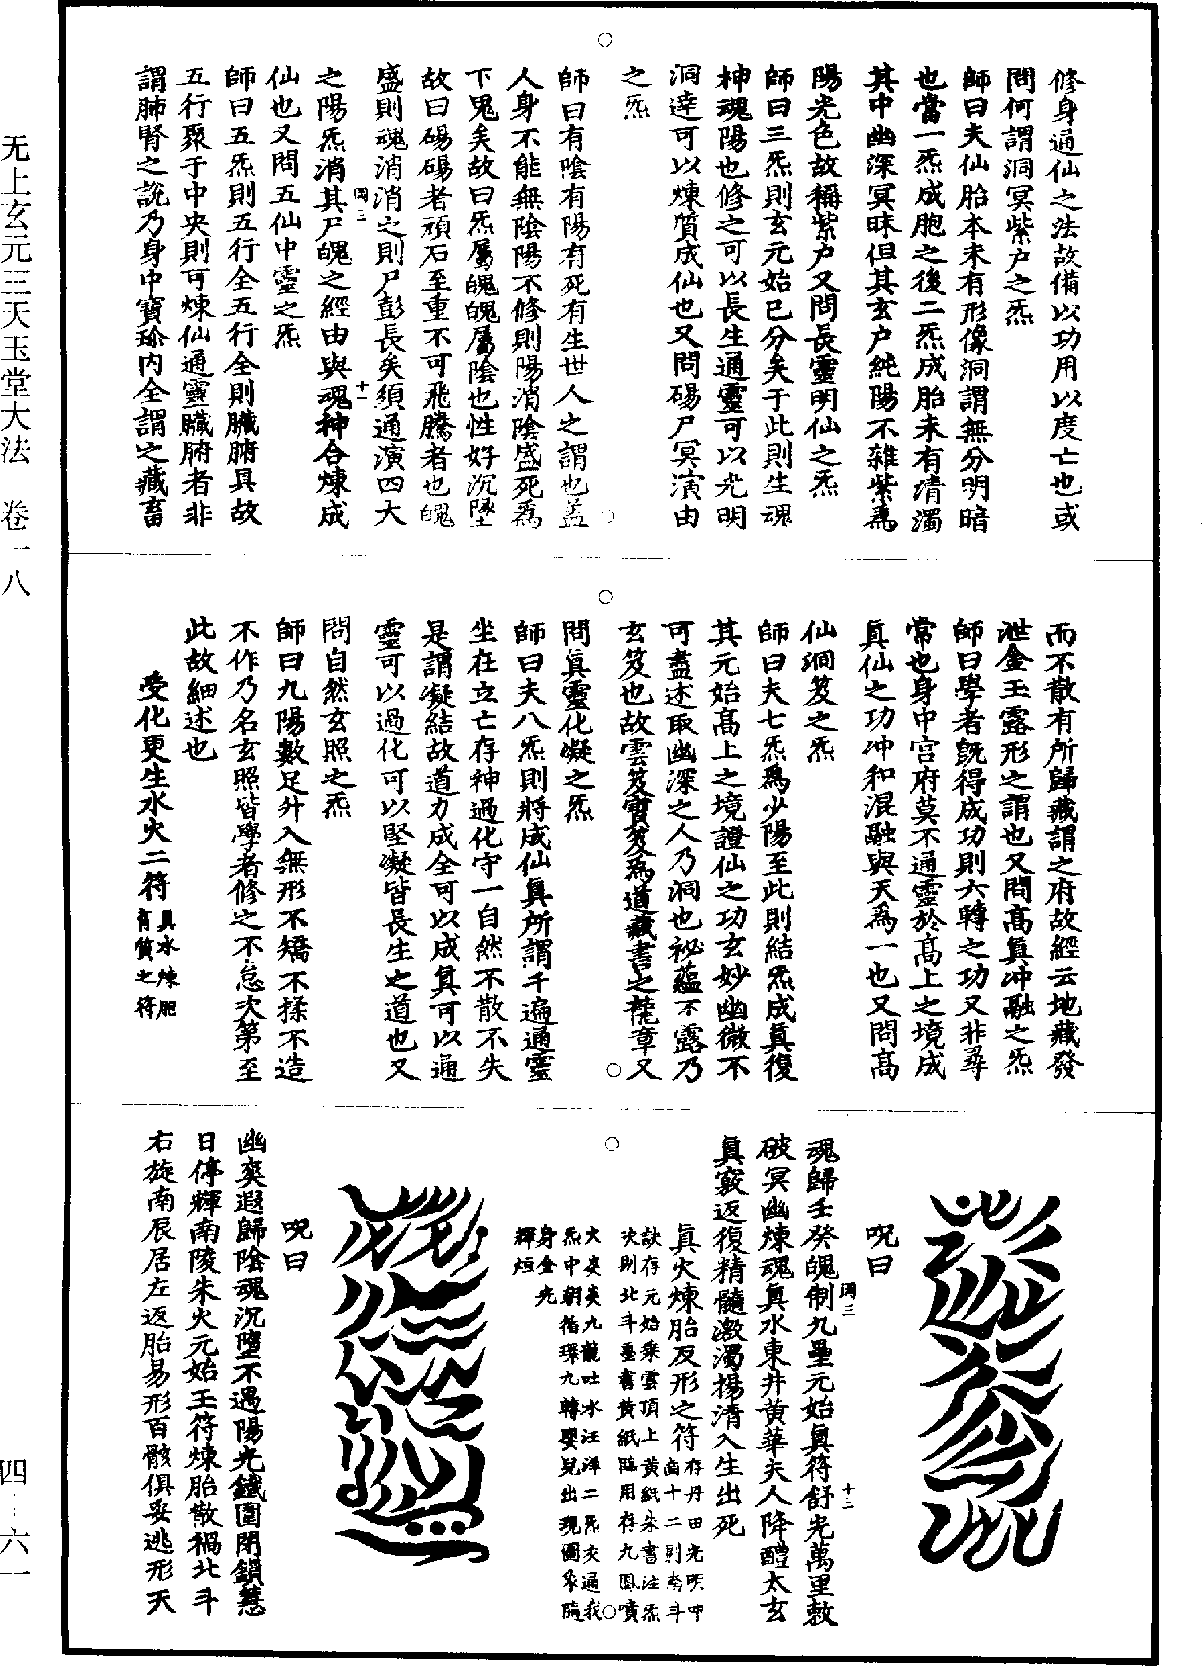 无上玄元三天玉堂大法　卷一八
四—六一
修身通仙之法故備以功用以度亡也或
問何謂洞冥紫户之炁
師曰夫仙胎本未有形像洞謂無分明暗
也當一炁成胞之後二炁成胎未有清濁
其中幽深冥昧但其玄户純陽不雜紫爲
陽光色故稱紫户又問長靈明仙之炁
師曰三炁則玄元始已分矣于此則生魂
神魂陽也修之可以長生通靈可以光明
洞達可以煉質成仙也又問碭尸冥演由
之炁
師曰有陰有陽有死有生世人之謂也盖
人身不能無陰陽不修則陽消陰盛死爲
下鬼矣故曰炁屬魄魄屬陰也性好沉墜
故曰碭碭者頑石至重不可飛騰者也魄
盛則魂消消之則尸彭長矣須通演四大
之陽炁消其尸魄之經由與魂神合煉成
仙也又問五仙中靈之炁
師曰五炁則五行全五行全則臟腑具故
五行聚于中央則可煉仙通靈臟腑者非
謂肺腎之説乃身中寶珍内全謂之藏畜
而不散有所歸藏謂之府故經云地藏發
泄金玉露形之謂也又問髙真冲融之炁
師曰學者旣得成功則六轉之功又非尋
常也身中宫府莫不通靈於髙上之境成
真仙之功冲和混融與天爲一也又問髙
仙洞笈之炁
師曰夫七炁爲少陽至此則結炁成真復
其元始髙上之境證仙之功玄妙幽微不
可盡述取幽深之人乃洞也祕蘊不露乃
玄笈也故雲笈寶笈爲道藏書之龍章又
問真靈化凝之炁
師曰夫八炁則將成仙真所謂千遍通靈
坐在立亡存神過化守一自然不散不失
是謂凝結故道力成全可以成真可以通
靈可以過化可以堅凝皆長生之道也又
問自然玄照之炁
師曰九陽數足升入無形不矯不揉不造
不作乃名玄照皆學者修之不怠次第至
此故細述也
受化更生水火二符真水煉胎
育質之符
呪曰
魂歸壬癸魄制九壘元始真符舒光萬里敕
破冥幽煉魂真水東井黄華夫人降醴太玄
真竅返復精髓激濁揚清入生出死
真火煉胎反形之符存丹田光明中
訣存元始乘雲頂上黄紙朱書注炁
次則北斗墨書黄紙臨用存九鳳噴
火炎炎九龍吐水汪洋二炁交通我
炁中朝循環九轉嬰兒出現圓象隨
身金光
輝烜
呪曰
幽爽遐歸陰魂沉墮不遇陽光鐵圍閉鎖慧
日停輝南陵朱火元始玉符煉胎散禍北斗
右旋南辰居左返胎易形百骸俱妥逃形天